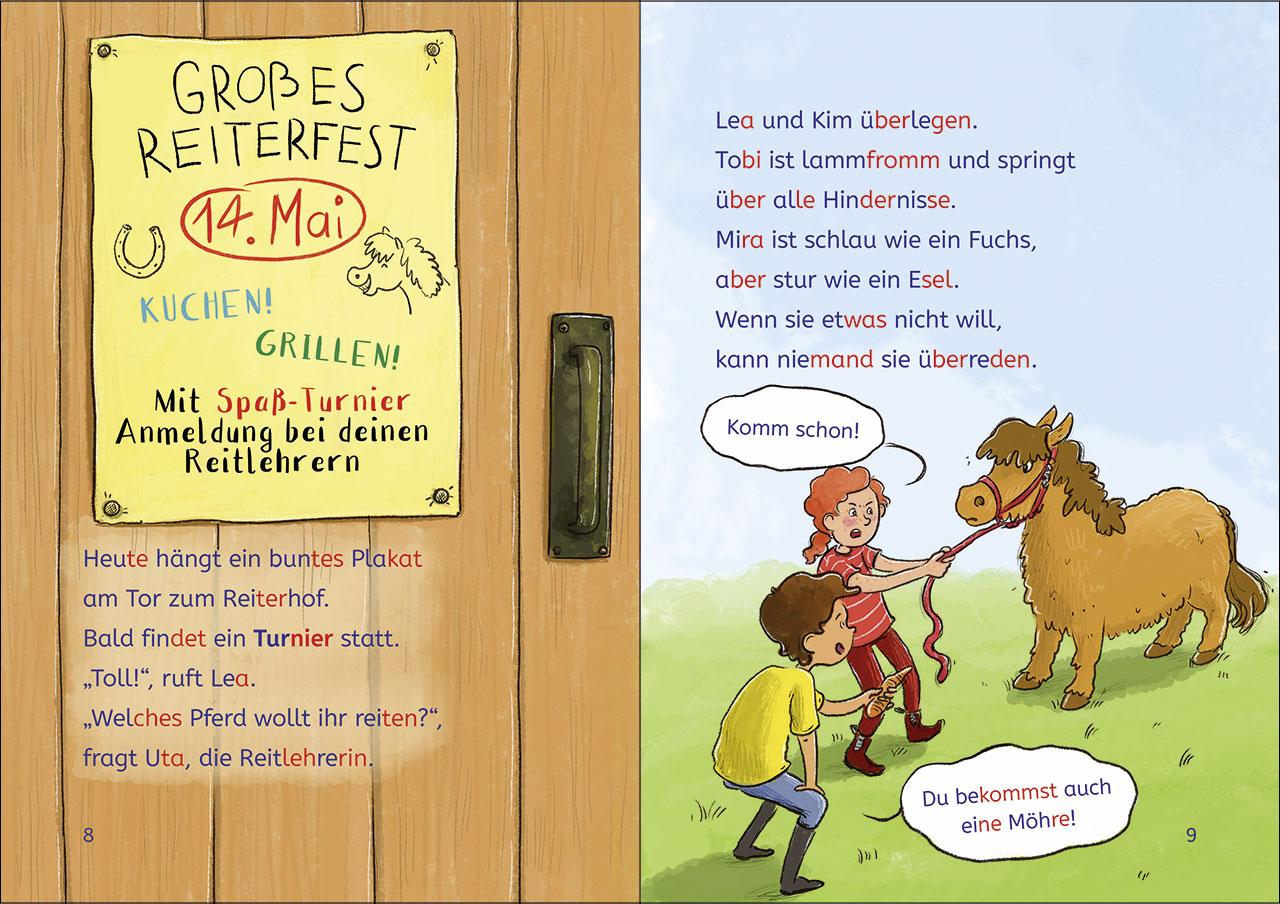 GROßES
REITERFEST
14. Mai
KUCHEN!
GRILLEN!
Mit Spaß-Turnier
Anmeldung bei deinen
Reitlehrern
Heute hängt ein buntes Plakat
am Tor zum Reiterhof.
Bald findet ein Turnier statt.
„Toll!“, ruft Lea.
„Welches Pferd wollt ihr reiten?“,
fragt Uta, die Reitlehrerin.
8
Lea und Kim überlegen.
Tobi ist lammfromm und springt
über alle Hindernisse.
Mira ist schlau wie ein Fuchs,
aber stur wie ein Esel.
Wenn sie etwas nicht will,
kann niemand sie überreden.
Komm schon!
Du bekommst auch
eine Möhre!
9